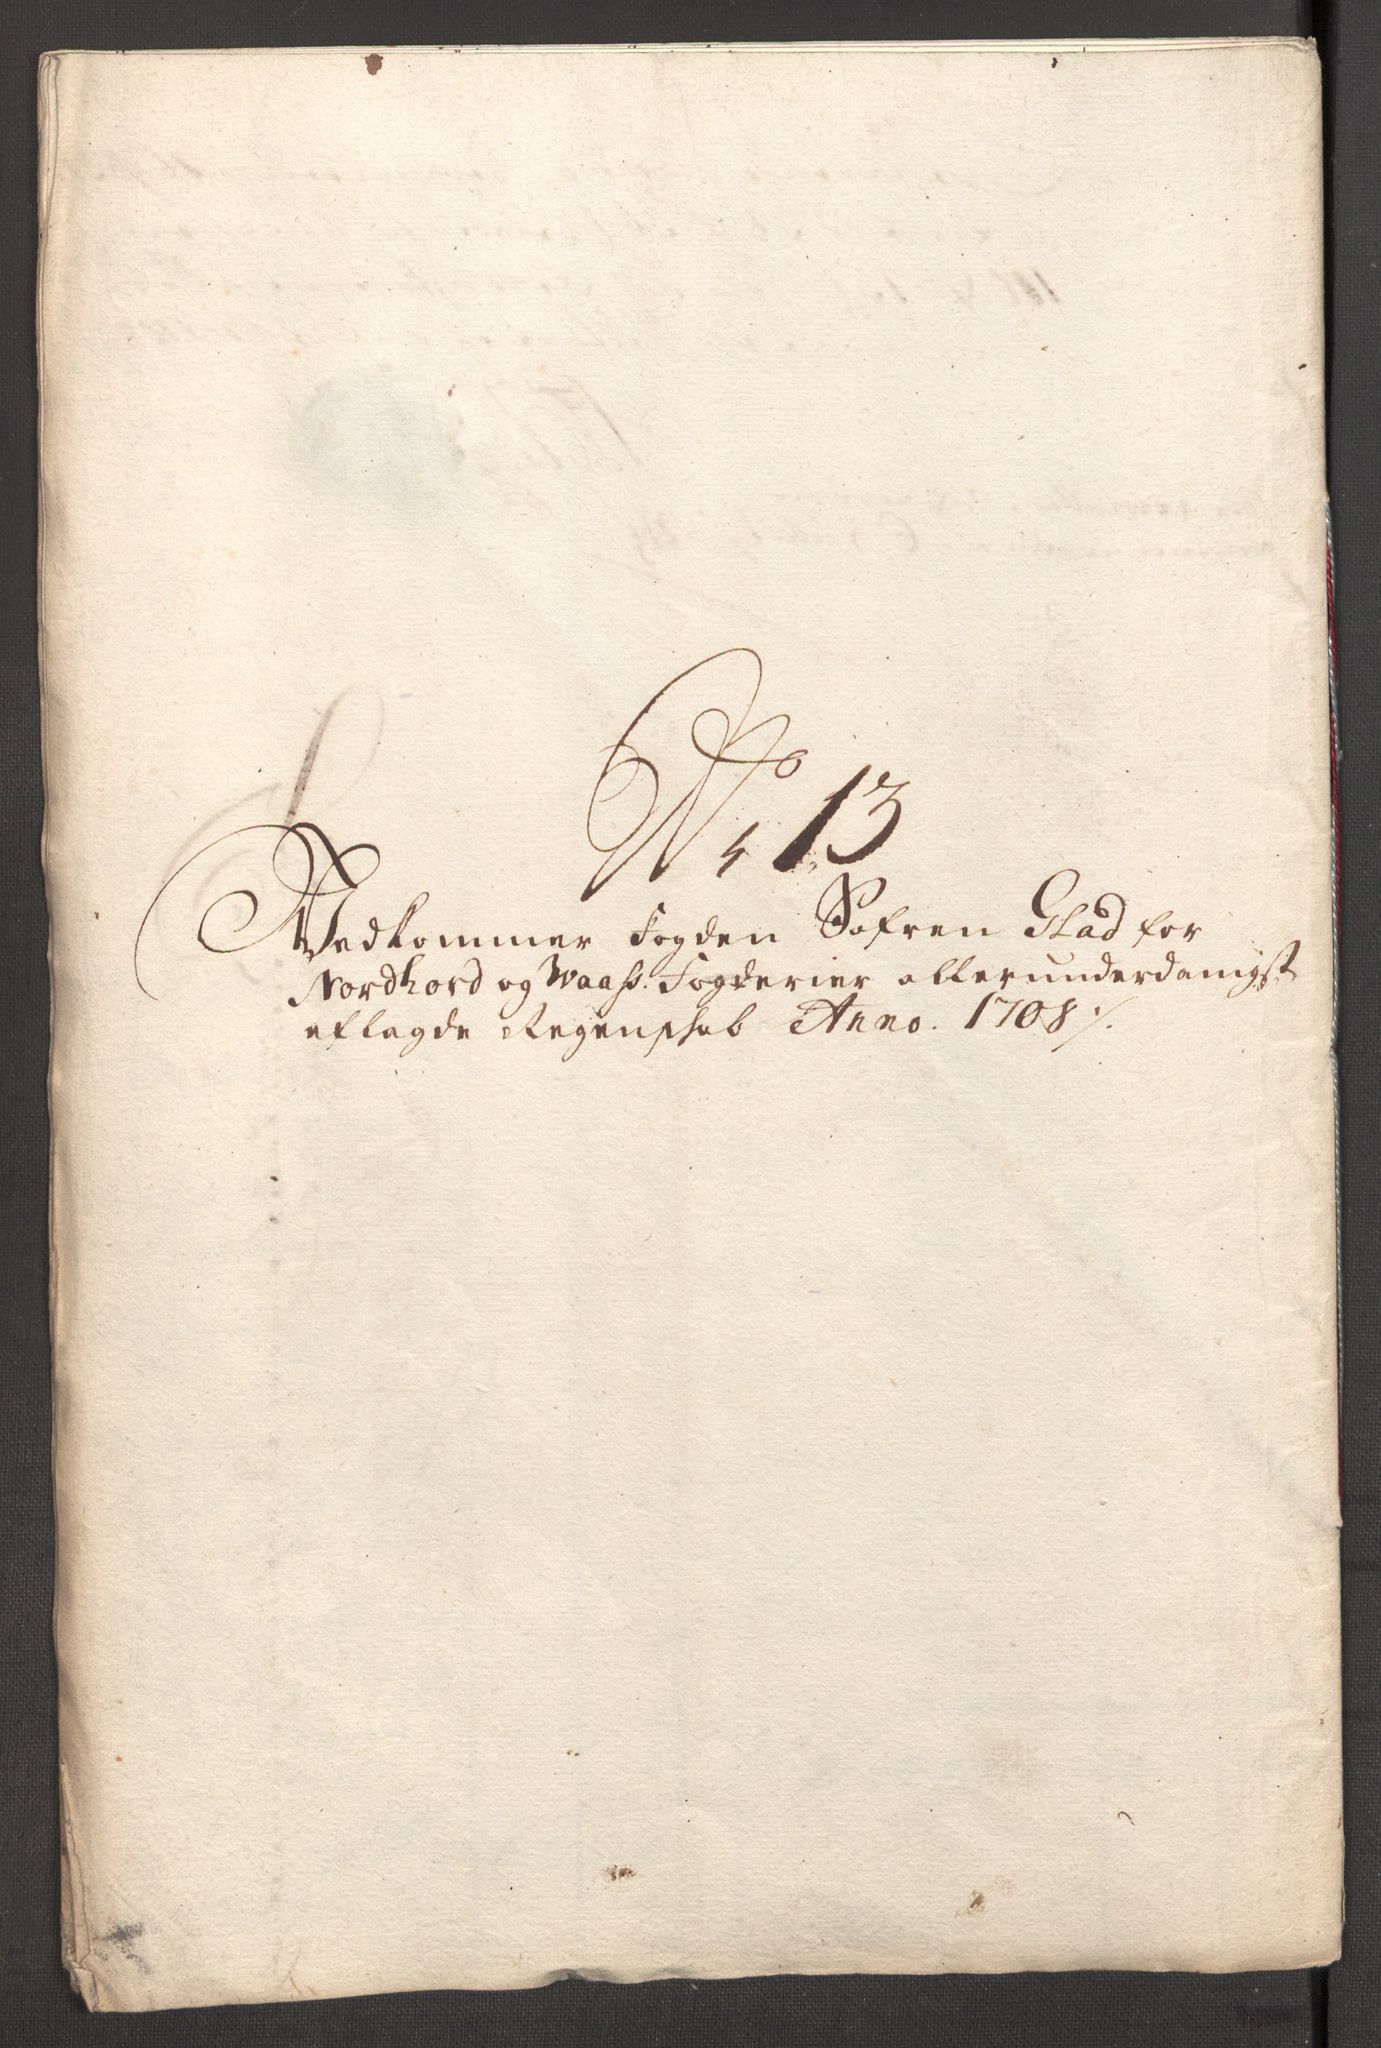 No 13
Vedkommer Fogden Søfren Glad for
Nordhord og Waass. Fogderier allerunderdanigst
aflagde Regenskab Anno. 1708 ⁒.